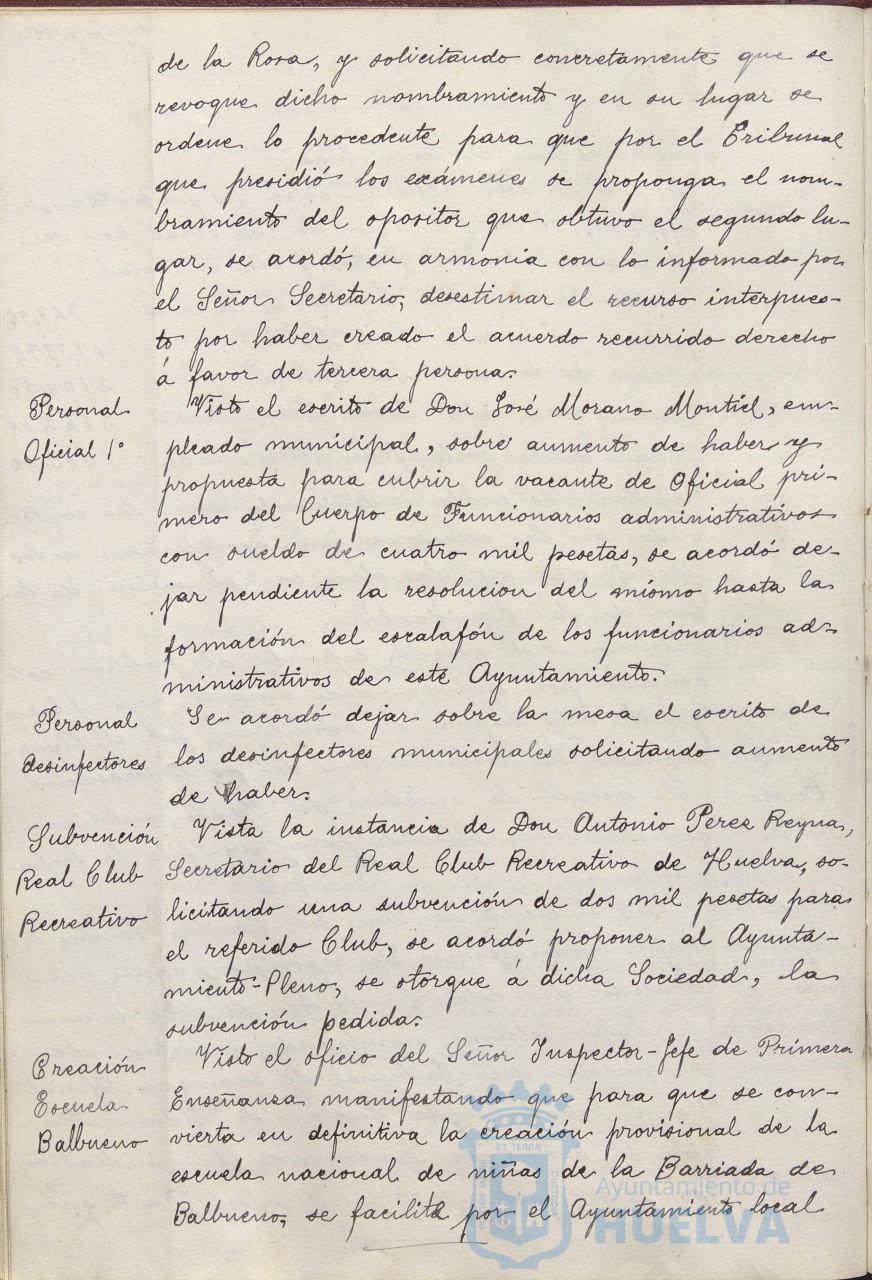 de la Rosa, y solicitando concretamente que se
revoque dicho nombramiento y en su lugar se
ordene lo procedente para que por el Tribunal
que presidió los exámenes se proponga el nom-
bramiento del opositor que obtuvo el segundo lu-
gar, se acordó, en armonia con lo informado por
el Señor Secretario, desestimar el recurso interpues-
to por haber creado el acuerdo recurrido derecho
á favor de tercera persona.
Personal
Oficial 1º
Visto el escrito de Don José Morano Montiel, em-
pleado municipal, sobre aumento de haber y
propuesta para cubrir la vacante de Oficial pri-
mero del Cuerpo de Funcionarios administrativos
con sueldo de cuatro mil pesetas, se acordó de-
jar pendiente la resolucion del mismo hasta la
formación del escalafón de los funcionarios ad-
ministrativos de este Ayuntamiento.
Personal
desinfectores
Se acordó dejar sobre la mesa el escrito de
los desinfectores municipales solicitando aumento
de haber.
Subvención
Real Club
Recreativo
Vista la instancia de Don Antonio Perez Reyna,
Secretario del Real Club Recreativo de Huelva, so-
licitando una subvención de dos mil pesetas para
el referido Club, se acordó proponer al Ayunta-
miento-Pleno, se otorgue á dicha Sociedad, la
subvención pedida.
Creación
Escuela
Balbueno
Visto el oficio del Señor Inspector-Jefe de Primera
Enseñanza manifestando que para que se con-
vierta en definitiva la creación provisional de la
escuela nacional de niñas de la Barriada de
Balbueno, se facilite por el Ayuntamiento local
Ayuntamiento de
HUELVA